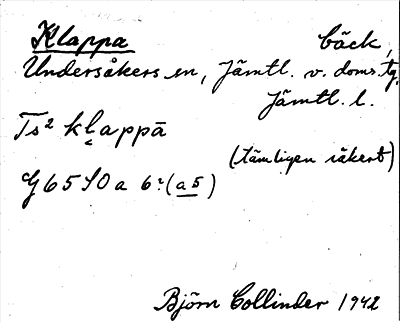 Klappa bäck,
Undersåkers sn, Jämtl. v. doms.tg.
Jämtl. l.
Ts² kl̥appā
(tämligen säkert)
G 65 S0 a 6 ? (a 5)
Björn Collinder 1942